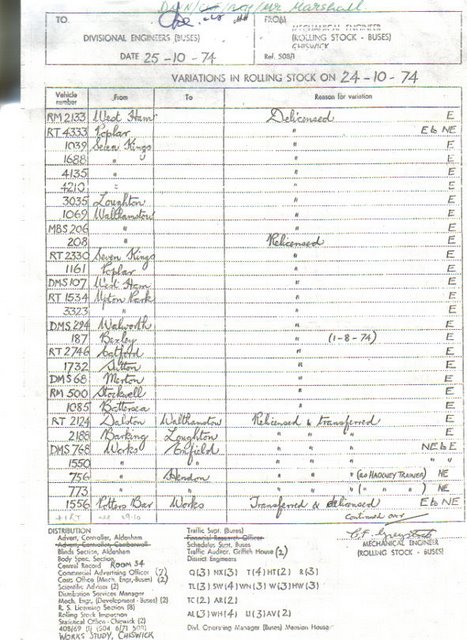 TO.
DIVISIONAL ENGINEERS (BUSES)
DATE 25-10-74
FROM
MECHANICAL ENGINEER
(ROLLING STOCK - BUSES)
CHISWICK
Ref. 508/1
VARIATIONS IN ROLLING STOCK ON 24-10-74
Vehicle number From To Reason for variation
RM 2133 West Ham Delicensed E
RT 4333 Poplar " E b NE
1039 Seven Kings " E
1688 " " E
4135 " " E
4210 " " E
3035 Loughton " E
1069 Walthamstow " E
MBS 206 " " E
208 " Relicensed E
RT 2330 Seven Kings " E
1161 Poplar " E
DMS 107 West Ham " E
RT 1534 Upton Park " E
3323 " " E
DMS 294 Walworth " E
187 Bexley " (1-8-74) E
RT 2746 Catford " E
1732 Sutton " E
DMS 68 Merton " E
RM 500 Stockwell " E
1085 Battersea " E
RT 2124 Dalston Walthamstow Relicensed & transferred E
2188 Barking Loughton " " " E
DMS 768 Works Enfield " " " NE b E
1550 " " " " " " "
756 " Hendon " " " (RO HACKNEY TRAINER) NE
773 " " " " " ( " " ) NE
1556 Potters Bar Works Transferred & delicensed E b NE
Continued over
MECHANICAL ENGINEER
(ROLLING STOCK - BUSES)
DISTRIBUTION
Advert. Controller, Aldenham
Advert. Controller, Camberwell
Blinds Section, Aldenham
Body Spec. Section
Central Record ROOM 34
Commercial Advertising Officer (7)
Costs Office (Mech. Engr. Buses) (2)
Scientific Adviser (2)
Distribution Services Manager
Mech. Engr. (Development - Buses) (2)
R. S. Licensing Section (8)
Rolling Stock Inspection
Statistical Office - Chiswick (2)
WORKS STUDY, CHISWICK
Traffic Supt. (Buses)
Financial Research Officer
Schedules Supt. Buses
Traffic Auditor, Griffith House (2)
District Engineers
Q(3) HX(3) T(4) HT(2) R(3)
TL(3) SW(4) WN(3) W(3) HW(3)
TC(2) AR(2)
AL(3) WH(4) U(3) AV(2)
Divl. Operating Manager (Buses) Mansion House